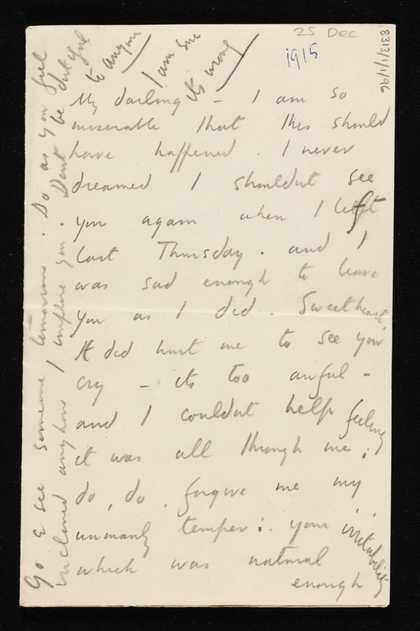 25 Dec
1915
8313/1/1/96
My darling – I am so
miserable that this should
have happened. I never
dreamed I shouldnt see
you again when I left
last Thursday. and I
was sad enough to leave
you as I did. Sweetheart,
it did hurt me to see you
cry – its too awful –
and I couldnt help feeling
it was all through me;
do, do forgive me my
unmanly temper: your irritability
which was natural
enough
Go & see someone tomorrow. Do as you feel
inclined anyhow I implore you. Dont be dutiful
to anyone
I am sure
its wrong